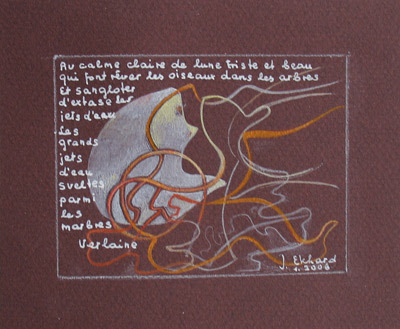 Au calme claire de lune triste et beau
qui font rêver les oiseaux dans les arbres
Et sangloter
d'extase les
jets d'eau
Les
grands
jets
d'eau
sveltes
parmi
les
marbres
Verlaine
J. Ekhard
2008